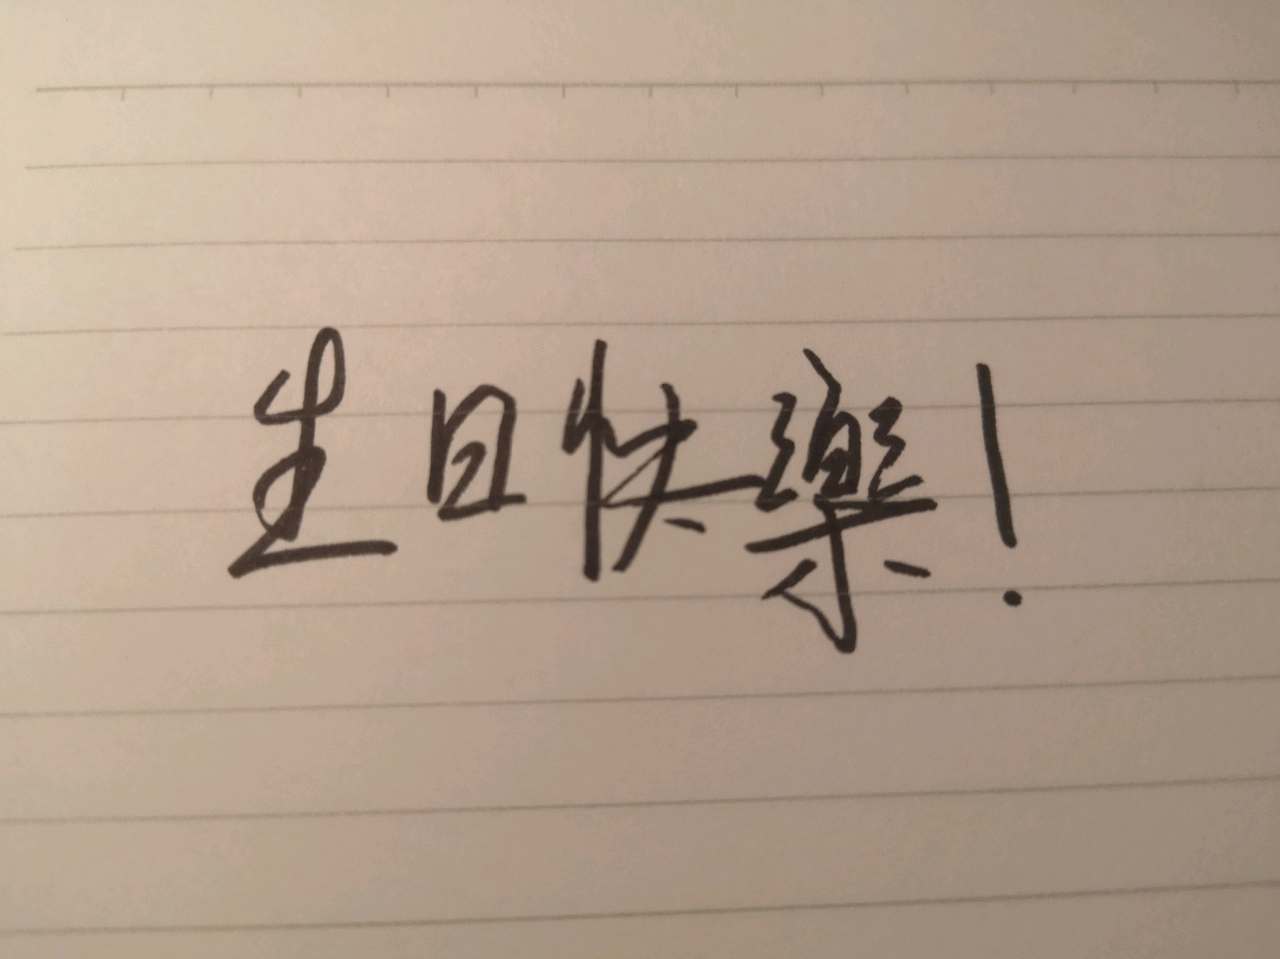 生日快樂！